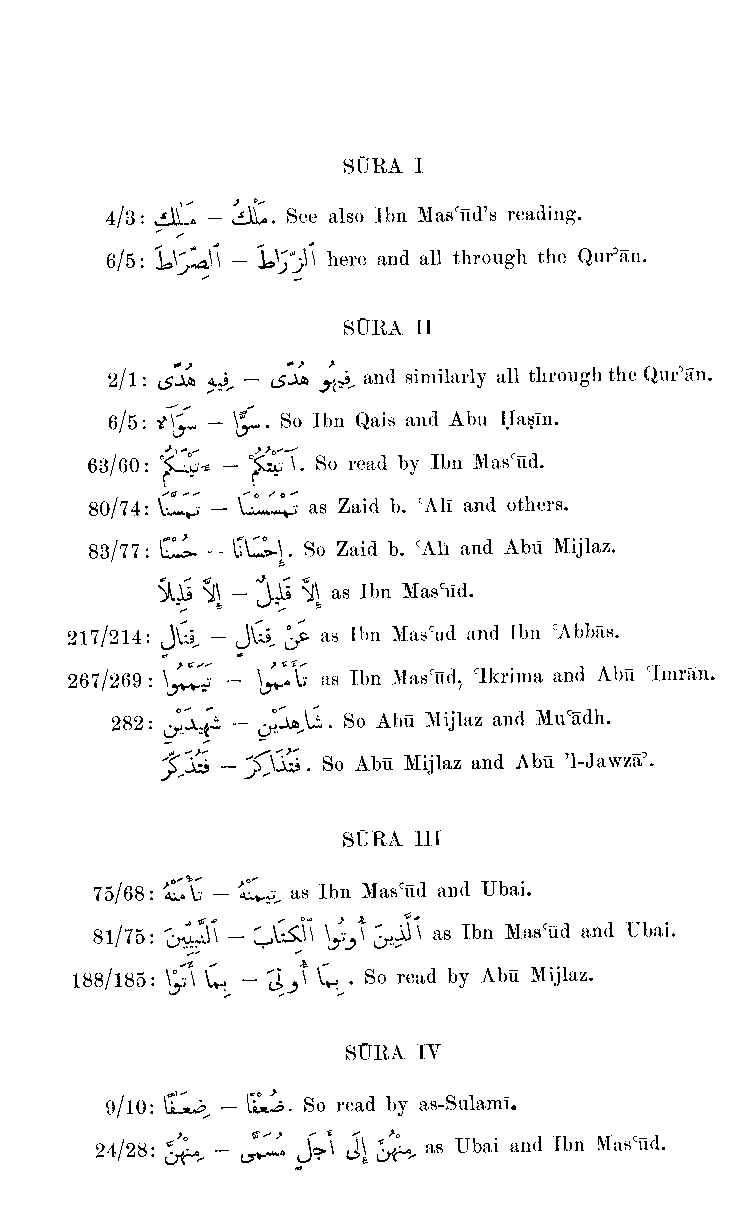 SŪRA I
4/3: مَـٰلِكِ – مَلْكُ. See also Ibn Masʿūd's reading.
6/5: ٱلصِّرَاطَ – ٱلزِّرَاطَ here and all through the Qurʾān.
SŪRA II
2/1: فِيهِ هُدًى – فِيهُو هُدًى and similarly all through the Qurʾān.
6/5: سَوَآءٌ – سَوًّا. So Ibn Qais and Abu Ḥaṣīn.
63/60: – So read by Ibn Masʿūd.
80/74: تَمَسَّنَا – تَمْسَسْنَا as Zaid b. ʿAlī and others.
83/77: حُسْنًا – إِحْسَانًا. So Zaid b. ʿAlī and Abū Mijlaz.
إِلَّا قَلِيلًا – إِلَّا قَلِيلٌ as Ibn Masʿūd.
217/214: قِتَالٍ – عَنْ قِتَالٍ as Ibn Masʿud and Ibn ʿAbbās.
267/269: تَيَمَّمُوا – تَأَمَّمُوا as Ibn Masʿūd, ʿIkrima and Abū ʿImrān.
282: شَهِيدَيْنِ – شَاهِدَيْنِ. So Abū Mijlaz and Muʿādh.
فَتُذَكِّرَ – فَتُذَاكِرَ. So Abū Mijlaz and Abū 'l-Jawzāʾ.
SŪRA III
75/68: تَأْمَنْهُ – تِيمَنْهُ as Ibn Masʿūd and Ubai.
81/75: ٱلنَّبِيِّينَ – ٱلَّذِينَ أُوتُوا ٱلْكِتَابَ as Ibn Masʿūd and Ubai.
188/185: بِمَا أَتَوْا – بِمَا So read by Abū Mijlaz.
SŪRA IV
9/10: ضِعَـٰفًا – ضُعْفًا. So read by as-Sulamī.
24/28: مِنْهُنَّ – مِنْهُنَّ إِلَى أَجَلٍ مُسَمًّى as Ubai and Ibn Masʿūd.